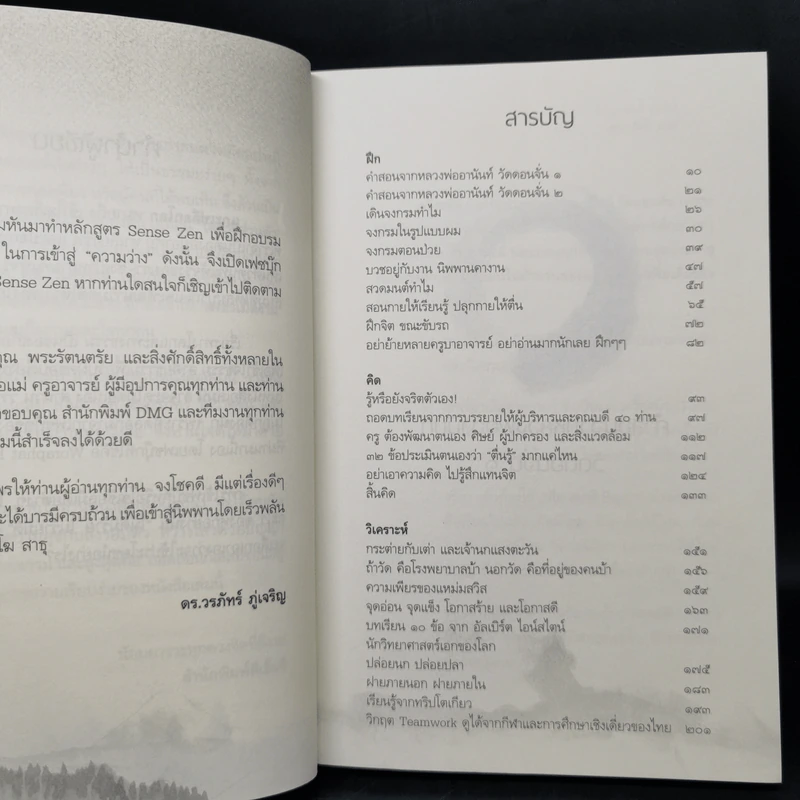 มหันมาทำหลักสูตร Sense Zen เพื่อฝึกอบรม
ในการเข้าสู่ “ความว่าง” ดังนั้น จึงเปิดเฟซบุ๊ก
Sense Zen หากท่านใดสนใจก็เชิญเข้าไปติดตาม
คุณ พระรัตนตรัย และสิ่งศักดิ์สิทธิ์ทั้งหลายใน
อแม่ ครูอาจารย์ ผู้มีอุปการคุณทุกท่าน และท่าน
าขอบคุณ สำนักพิมพ์ DMG และทีมงานทุกท่าน
มนี้สำเร็จลงได้ด้วยดี
พรให้ท่านผู้อ่านทุกท่าน จงโชคดี มีแต่เรื่องดีๆ
ะได้บารมีครบถ้วน เพื่อเข้าสู่นิพพานโดยเร็วพลัน
โฆ สาธุ
ดร.วรภัทร์ ภู่เจริญ
สารบัญ
ฝึก
คำสอนจากหลวงพ่ออานันท์ วัดดอนจั่น ๑ ๑๐
คำสอนจากหลวงพ่ออานันท์ วัดดอนจั่น ๒ ๒๑
เดินจงกรมทำไม ๒๖
จงกรมในรูปแบบผม ๓๐
จงกรมตอนป่วย ๓๙
บวชอยู่กับงาน นิพพานคางาน ๔๗
สวดมนต์ทำไม ๕๗
สอนกายให้เรียนรู้ ปลุกกายให้ตื่น ๖๕
ฝึกจิต ขณะขับรถ ๗๒
อย่าย้ายหลายครูบาอาจารย์ อย่าอ่านมากนักเลย ฝึกๆๆ ๘๒
คิด
รู้หรือยังจริตตัวเอง! ๙๓
ถอดบทเรียนจากการบรรยายให้ผู้บริหารและคุณบดี ๔๐ ท่าน ๙๗
ครู ต้องพัฒนาตนเอง ศิษย์ ผู้ปกครอง และสิ่งแวดล้อม ๑๑๒
๓๒ ข้อประเมินตนเองว่า “ตื่นรู้” มากแค่ไหน ๑๑๗
อย่าเอาความคิด ไปรู้สึกแทนจิต ๑๒๔
สิ้นคิด ๑๓๓
วิเคราะห์
กระต่ายกับเต่า และเจ้านกแสงตะวัน ๑๕๑
ถ้าวัด คือโรงพยาบาลบ้า นอกวัด คือที่อยู่ของคนบ้า ๑๕๖
ความเพียรของแหม่มสวิส ๑๕๙
จุดอ่อน จุดแข็ง โอกาสร้าย และโอกาสดี ๑๖๓
บทเรียน ๑๐ ข้อ จาก อัลเบิร์ต ไอน์สไตน์ ๑๗๑
นักวิทยาศาสตร์เอกของโลก
ปล่อยนก ปล่อยปลา ๑๗๕
ฝายภายนอก ฝายภายใน ๑๘๓
เรียนรู้จากทริปโตเกียว ๑๙๓
วิกฤต Teamwork ดูได้จากกีฬาและการศึกษาเชิงเดี่ยวของไทย ๒๐๑